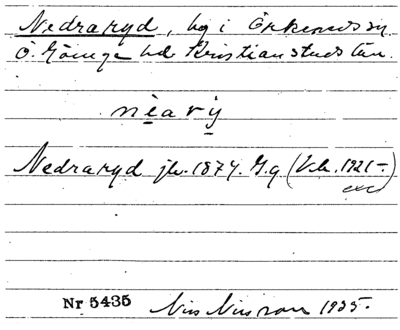 Nedraryd, by i Örkeneds sn
Ö. Göinge hd Kristianstads län.
nèarý
Nedraryd jb. 1874. G.q (V.b. 1921-)
Nr 5435 Nils Nilsson 1935.